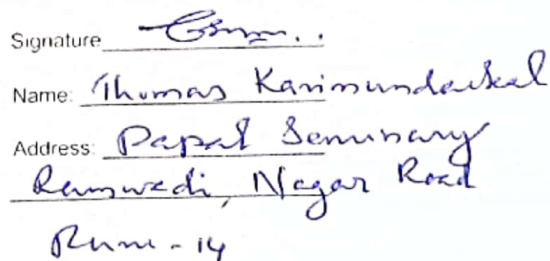 Signature
Name: Thomas Karimundackal
Address: Papal Seminary
Ramwadi, Nagar Road
Pune - 14